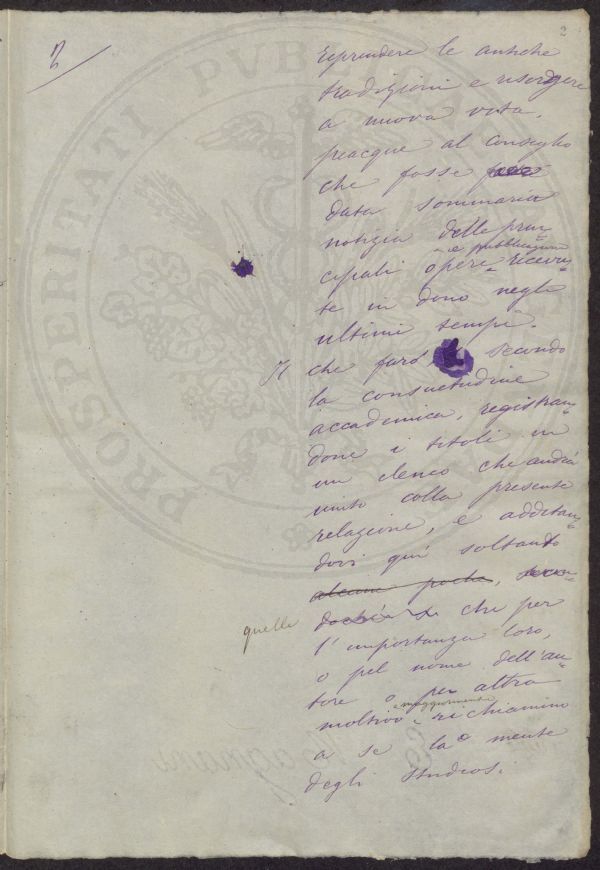 2
2
PROSPERITATI PVBLICAE
reprendere le antiche
tradizioni e risorgere
a nuova vita.
piacque al Consiglio
che fosse
data sommaria
notizia delle prin-
e pubblicazioni
cipali opere ricevu-
te in dono negli
ultimi tempi.
Il che farò secondo
la consuetudine
accademica, registran-
done i titoli in
un elenco che andrà
unito colla presente
relazione, e additan-
dovi qui soltanto
alcune poche,
quelle
che per
l'importanza loro,
o pel nome dell'au-
tore o per altro
maggiormente
motivo richiamino
a se la mente
degli studiosi.